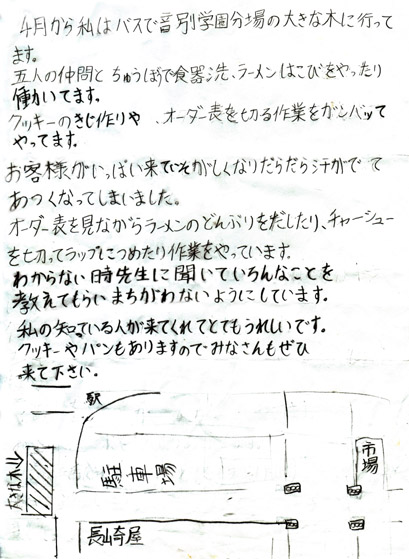 4月から私はバスで音別学園分場の大きな木に行って
ます。
五人の仲間と ちゅうぼうで食器洗、ラーメンはこびをやったり
働かいてます。
クッキーのきじ作りや、オーダー表を切る作業をがンバッて
やってます。
お客様がいっぱい来ていそがしくなりだらだら汗がでて
あつくなってしまいました。
オーダー表を見ながらラーメンのどんぶりをだしたり、チャーシュー
を切ってラップにつめたり作業をやっています。
わからない時先生に聞いていろんなことを
教えてもらいまちがわないようにしています。
私の知っている人が来てくれてとてもうれしいです。
クッキーやパンもありますのでみなさんもぜひ
来て下さい。
駅
駐車場
市場
大きな木
長崎屋